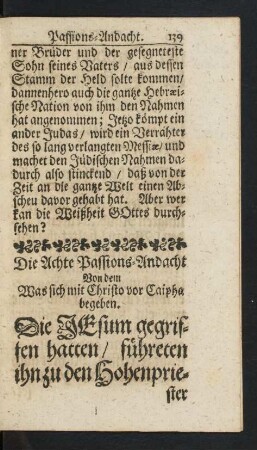 Passions-Andacht. 139
ner Brüder und der gesegneteste
Sohn seines Vaters / aus dessen
Stamm der Held solte kommen /
dannenhero auch die gantze Hebræi-
sche Nation von ihm den Nahmen
hat angenommen; Jetzo kömpt ein
ander Judas / wird ein Verrähter
des so lang verlangten Messiæ / und
machet den Jüdischen Nahmen da-
durch also stinckend / daß von der
Zeit an die gantze Welt einen Ab-
scheu davor gehabt hat. Aber wer
kan die Weißheit GOttes durch-
sehen?
Die Achte Passions-Andacht
Von dem
Was sich mit Christo vor Caipha
begeben.
Die JEsum gegrif-
fen hatten / führeten
ihn zu den Hohenprie-
ster